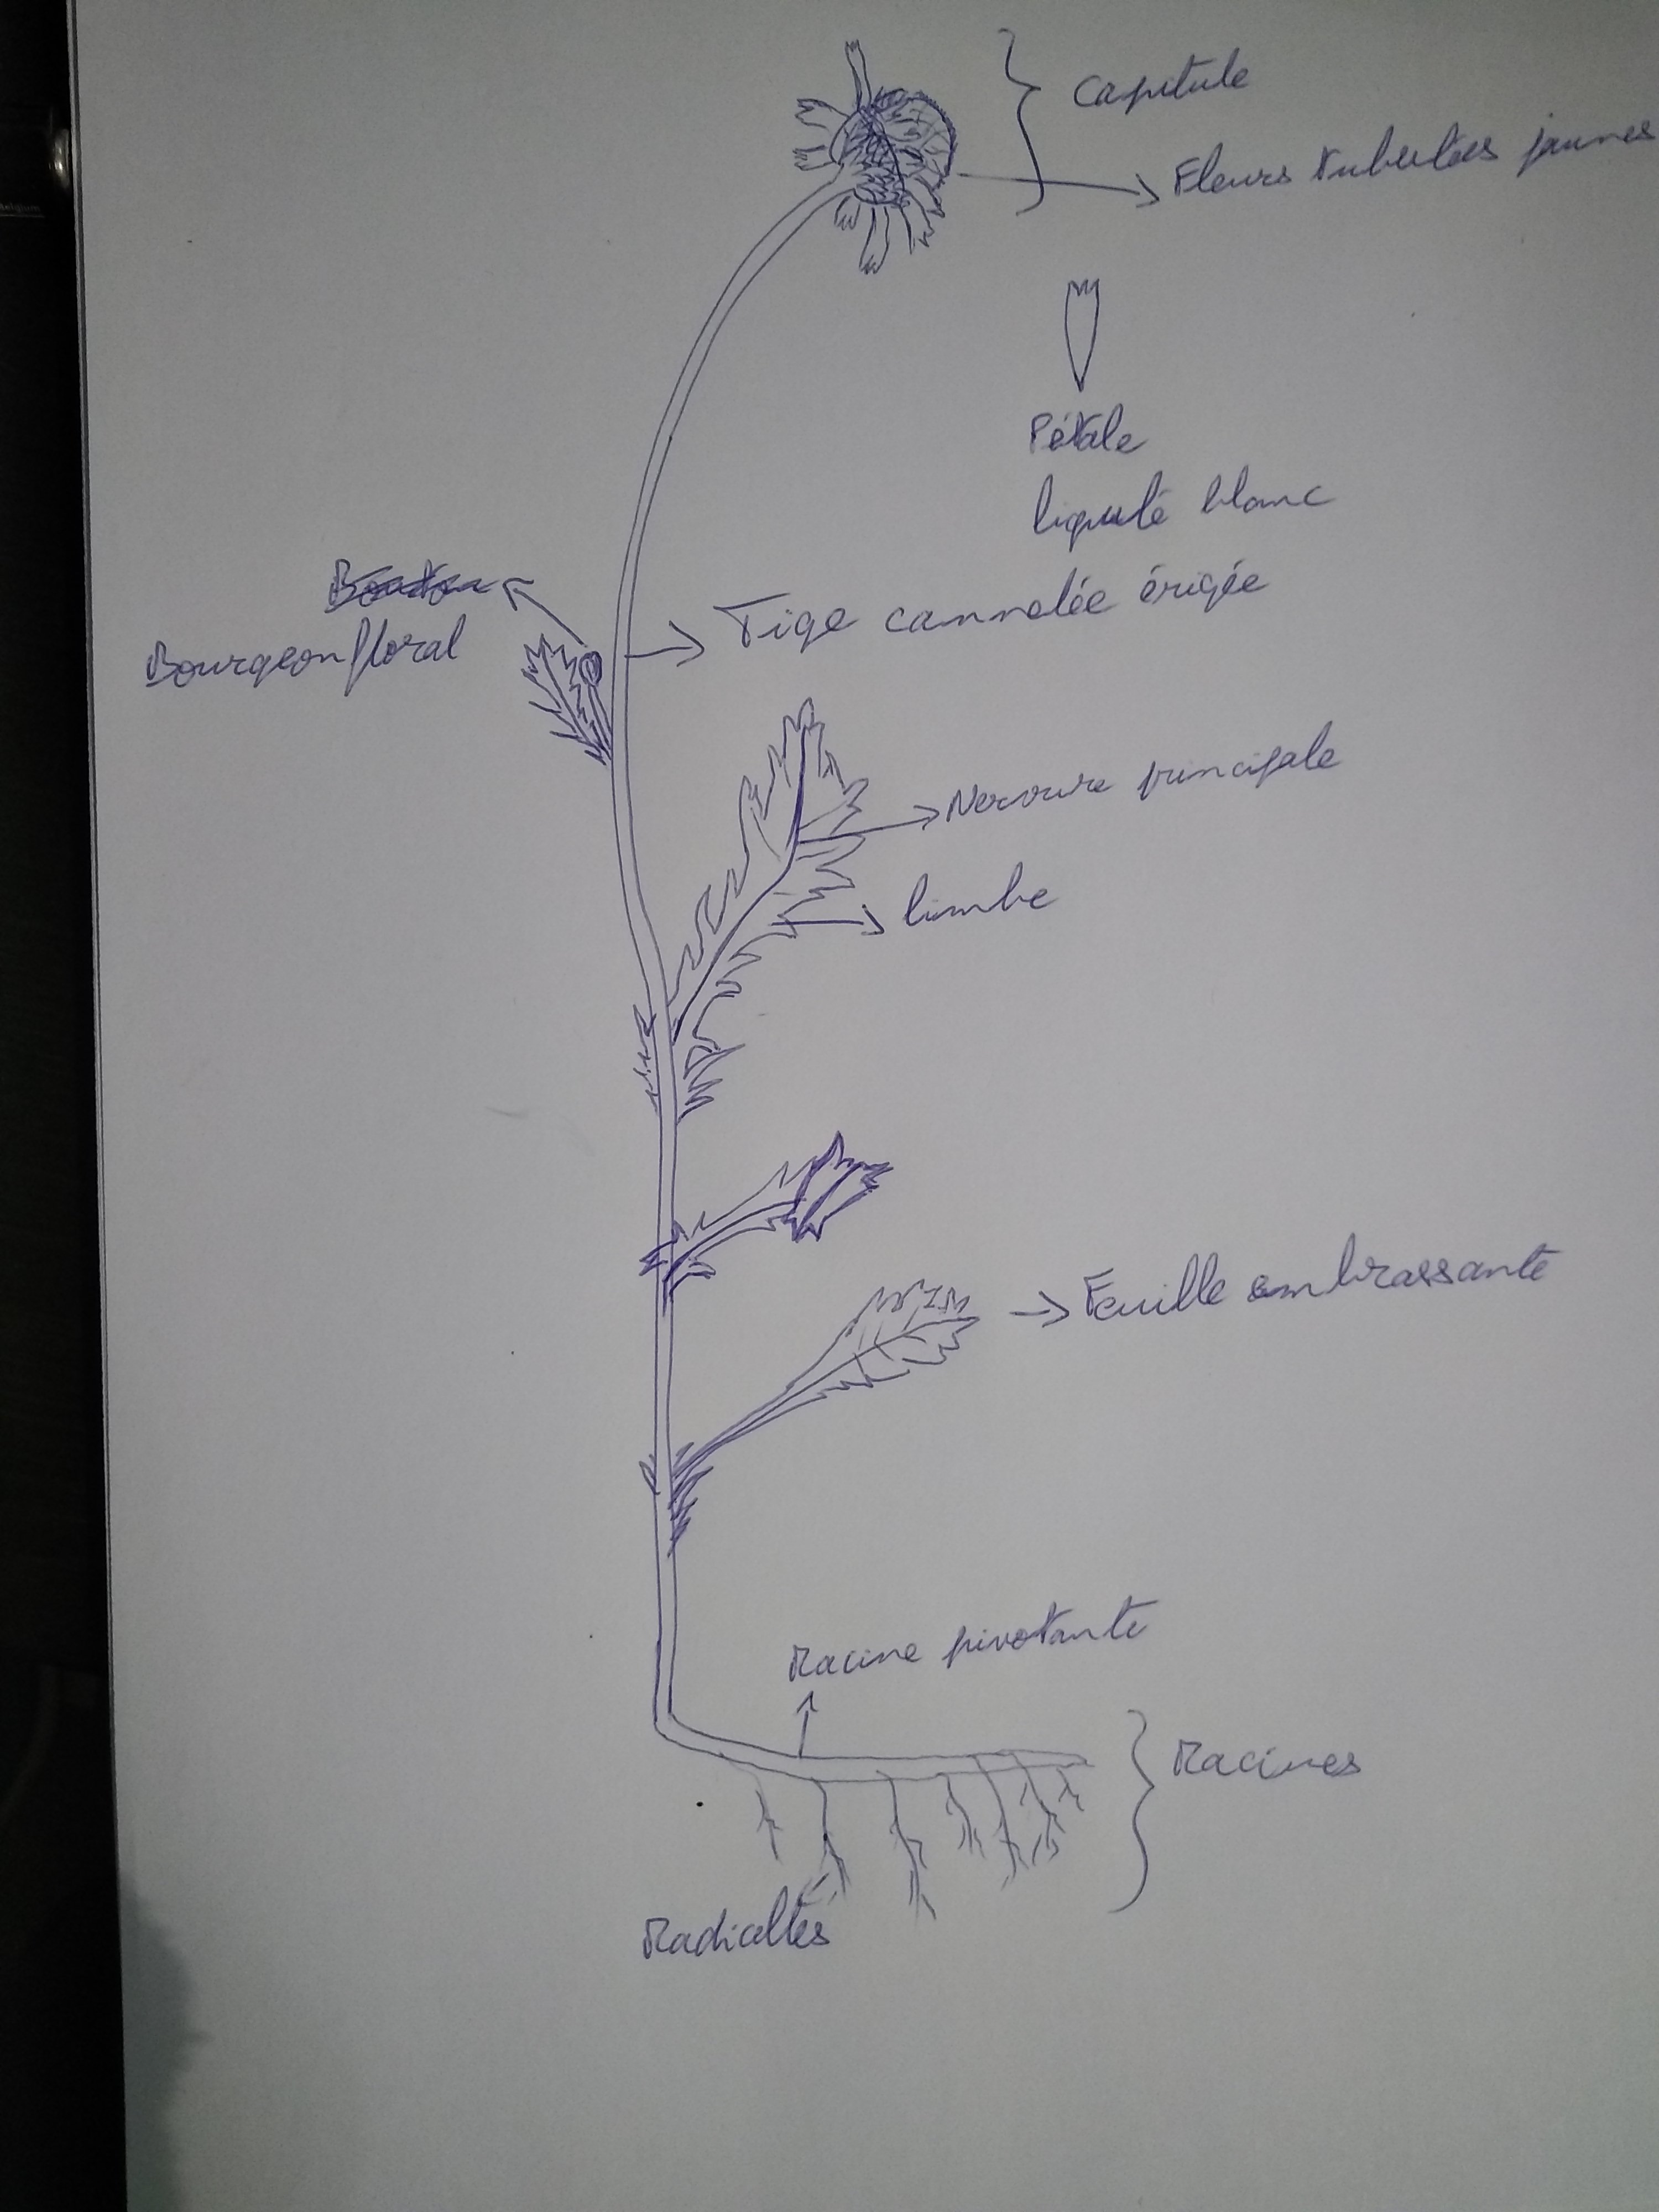 Capitule
Fleurs tubulées jaunes
Pétale
ligulé blanc
Tige cannelée érigée
Bourgeon floral
Nervure principale
limbe
Feuille embrassante
Racine pivotante
Racines
Radicelles